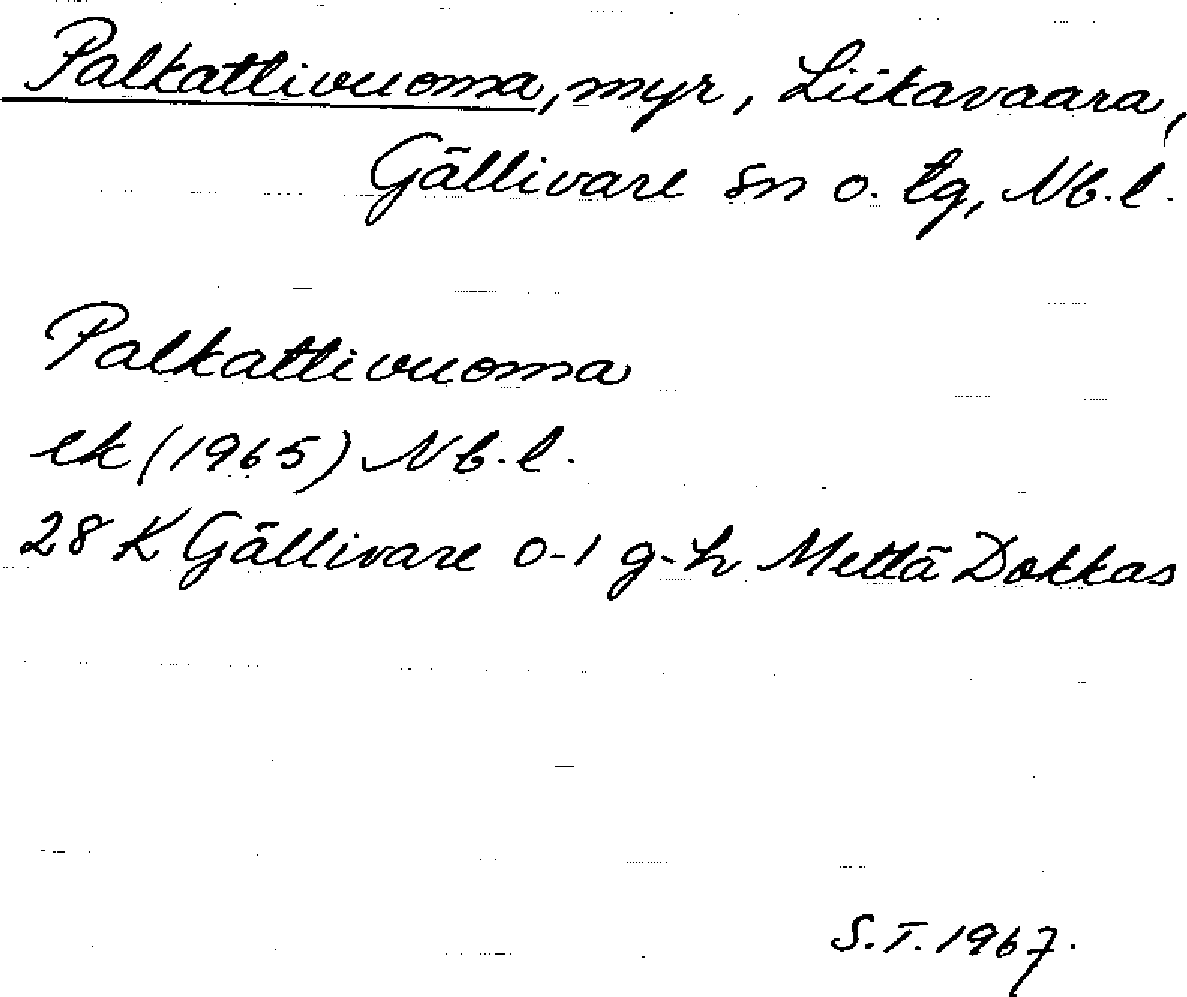 Palkattivuoma, myr, Liikavaara,
Gällivare sn o. tg, Nb.l.
Palkattivuoma
ek (1965) Nb.l.
28 K Gällivare 0-1 g-h Mettä Dokkas
S.T. 1967.